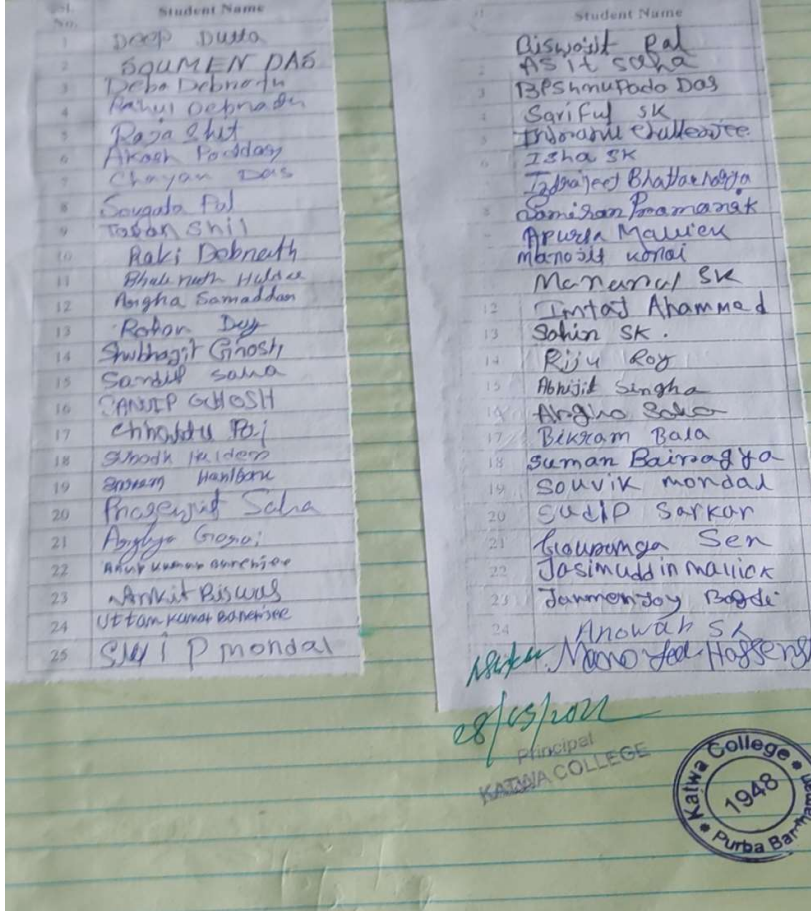 Sl. No. Student Name
1 Deep Dutta
2 SOUMEN DAS
3 Debo Debnadu
4 Rahul Debnadu
5 Raja Shit
6 Akash Poddar
7 Chayan Das
8 Sougata Pal
9 Tapan Shil
10 Raki Debnath
11 Bhula nath Halder
12 Angha Samaddan
13 Rohan Dey
14 Shubhagit Ghosh
15 Sandip saha
16 SANDIP GHOSH
17 Chhottu
18 Halder
19
20 Prosenjit Saha
21
22 Anup kumar Banerjee
23 Ankit Biswas
24 Uttam Kumar Banerjee
25 mondal
Student Name
Biswajit Pal
2 Asit saha
3 Bishnupada Das
4 Sariful SK
5 Indranil Chatterjee
6 Isha SK
Indrajeet Bhattacharya
8 Samiran Pramanik
Apurba Mallick
manojit konai
Manarul SK
12 Imtaj Ahammed
13 Sahin SK.
14 Riju Roy
15 Abhijit Singha
16 Argho Saha
17 Bikram Bala
18 Suman Bairagya
19 Souvik mondal
20 SUDIP Sarkar
21 Gouranga Sen
22 Jasimuddin mallick
23 Janmenjoy Bagdi
24 Anowar SK
28/05/2022
Principal
KATWA COLLEGE
Katwa College
1948
Purba